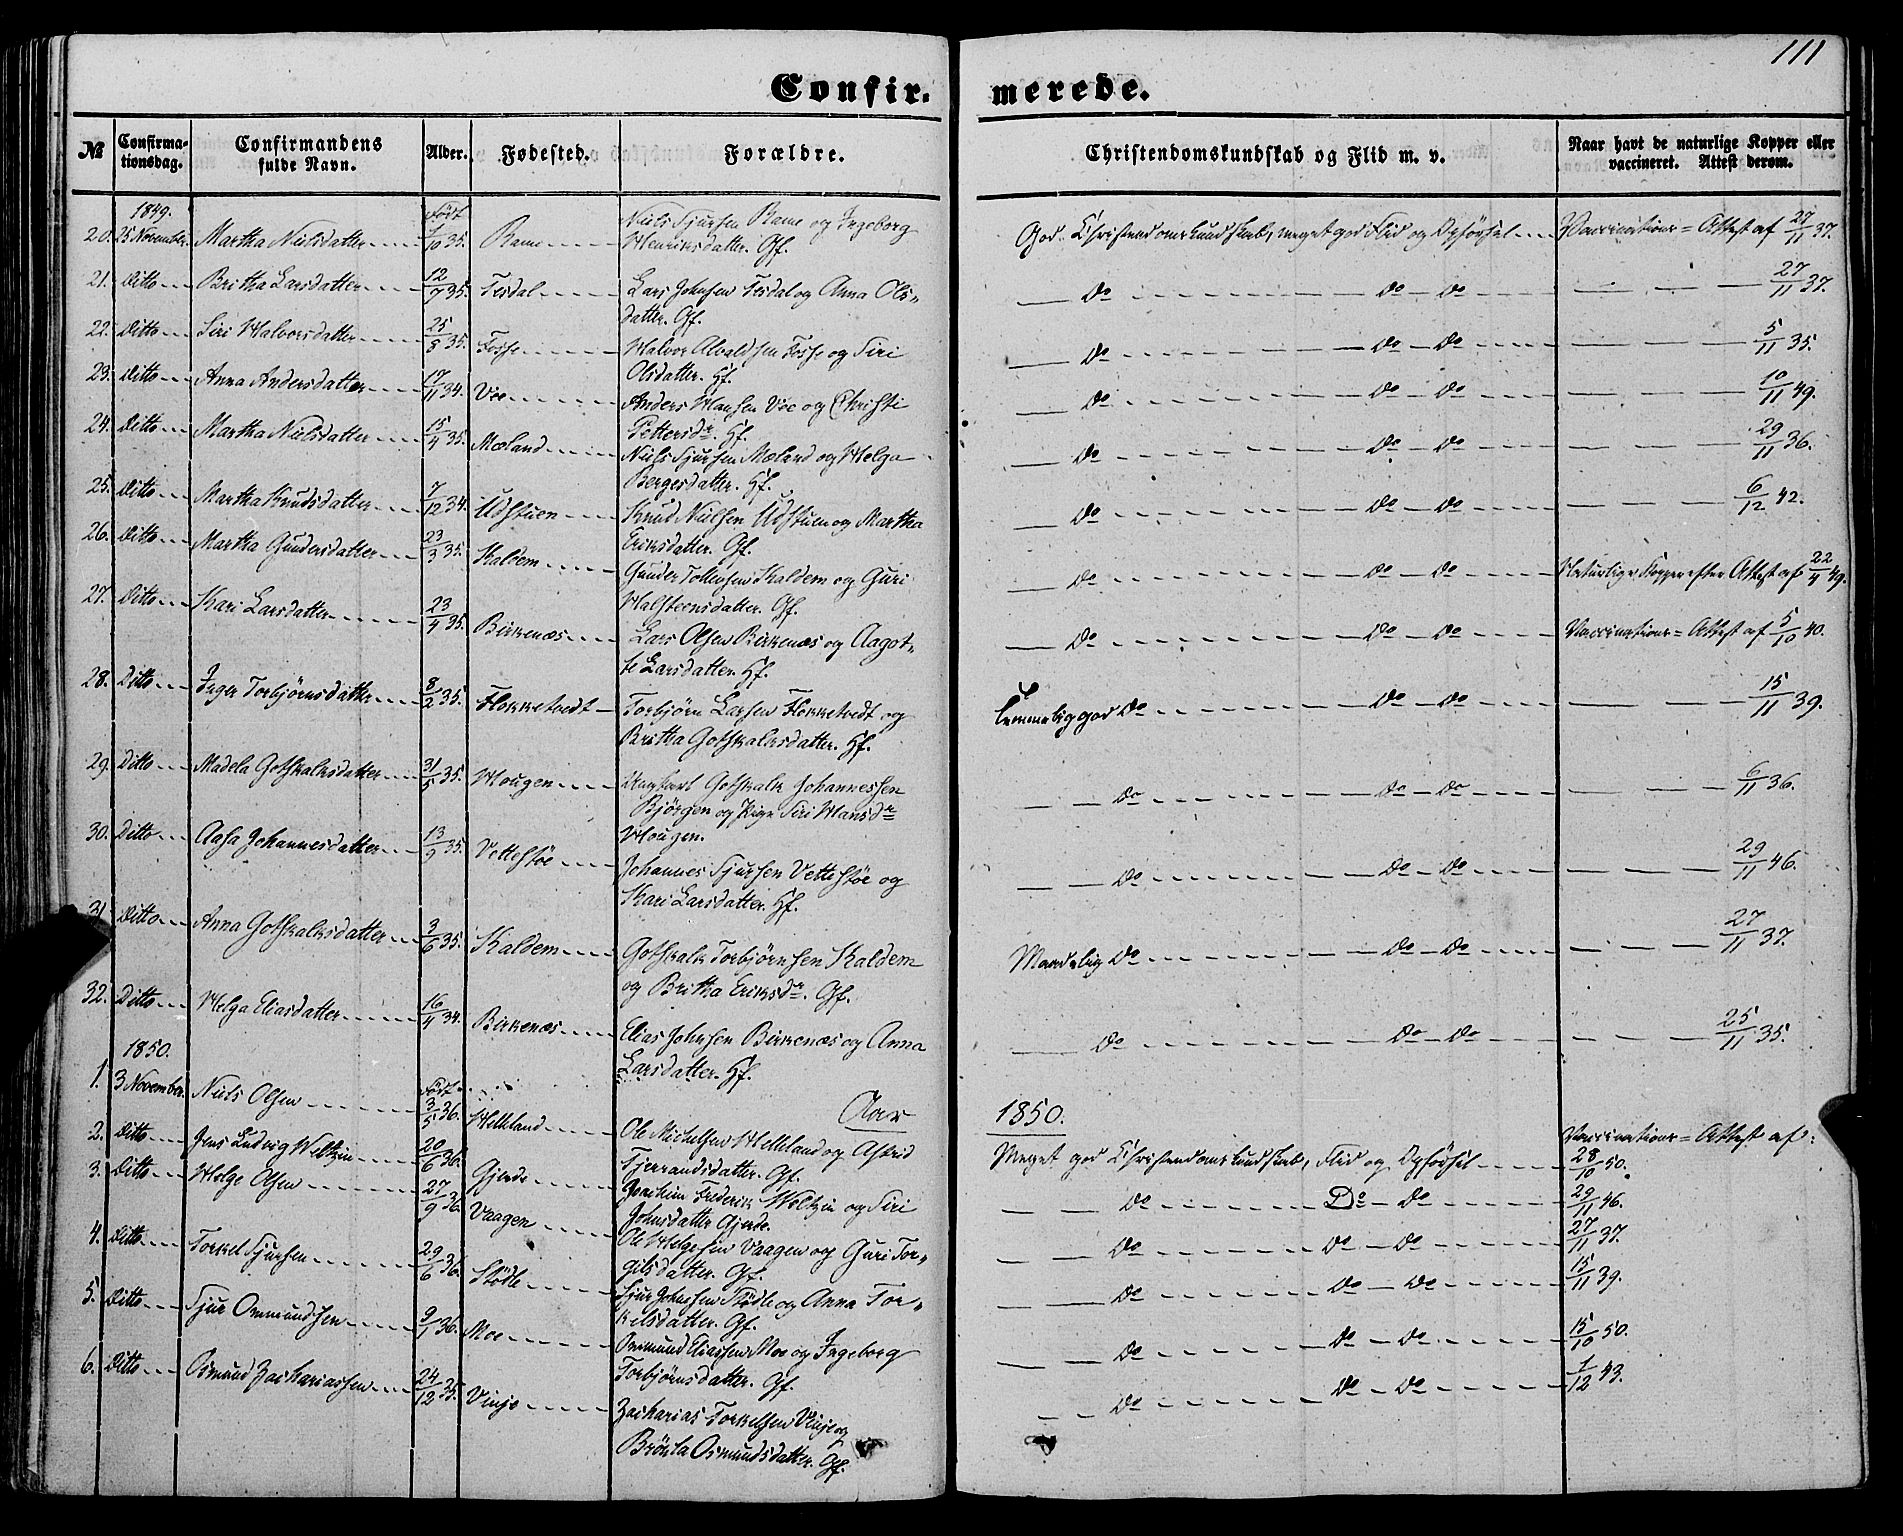 111
Confir. merede.
№ Confirma-tionsdag. Confirmandens fulde Navn. Alder. Fødested. Forældre. Christendomskundskab og Flid m. v. Naar havt de naturlige Kopper eller vaccineret. Attest derom.
1849. Født Niels Sjursen Rame og Ingeborg
20. 25 November. Martha Nielsdatter 1/10 35. Rame Henriksdatter. Gf. God Christendomskundskab, meget god Flid og Opførsel Vaccinations=Attest af 27/11 37.
21. Ditto Britha Larsdatter 12/7 35. Tesdal Lars Johnsen Tesdal og Anna Ols=
datter. Gf. Do Do Do 27/11 37.
22. Ditto Siri Halvorsdatter 25/3 35. Fosse Halvor Alvaldsen Fosse og Siri
Olsdatter. Hf. Do Do Do 5/11 35.
23. Ditto Anna Andersdatter 17/11 34. Vee Anders Hansen Vee og Christi
Pettersdr. Hf. Do Do Do 10/11 49.
24. Ditto Martha Nielsdatter 15/4 35. Mæland Niels Sjursen Mæland og Helga
Bergesdatter. Hf. Do Do Do 29/11 36.
25. Ditto Martha Knudsdatter 7/12 34. Udstuen Knud Nielsen Udstuen og Martha
Eriksdatter. Gf. Do Do Do 6/12 42.
26. Ditto Martha Gundersdatter 23/3 35. Skaldem Gunder Tollevsen Skaldem og Guri
Halsteensdatter. Gf. Do Do Do Naturlige Kopper efter Attest af 22/4 49.
27. Ditto Kari Larsdatter 23/4 35. Birkenæs Lars Olsen Birkenæs og Aagot=
te Larsdatter. Hf. Do Do Do Vaccinations=Attest af 5/10 40.
28. Ditto Inger Torbjørnsdatter 8/2 35. Flokketvedt Torbjørn Larsen Flokketvedt og
Britha Gotskalksdatter. Hf. Temmelig god Do Do Do 15/11 39.
29. Ditto Madela Gotskalksdatter 31/5 35. Hougen Ungkarl Gotskalk Johannessen
Bjørgen og Pige Siri Hansdr
Hougen. Do Do Do 6/11 36.
30. Ditto Aasa Johannesdatter 13/9 35. Vettestøe Johannes Sjursen Vettestøe og
Kari Larsdatter. Hf. Do Do Do 29/11 46.
31. Ditto Anna Gotskalksdatter 3/6 35. Skaldem Gotskalk Torbjørnsen Skaldem
og Britha Eriksdr. Gf. Maadelig Do Do Do 27/11 37.
32. Ditto Helga Eliasdatter 16/4 34. Birkenæs Elias Johnsen Birkenæs og Anna
Larsdatter. Hf. Do Do Do 25/11 35.
1850.
Født Aar 1850.
1. 3 November. Niels Olsen 3/5 36. Helleland Ole Michelsen Helleland og Astrid
Tjerrandsdatter. Gf. Meget god Christendomskundskab, Flid og Opførsel Vaccinations=Attest af: 28/10 50.
2. Ditto Jens Ludvig Weltzin 20/6 36. Gjerde Joachim Frederik Weltzin og Siri
Johnsdatter Gjerde. Do Do Do 29/11 46.
3. Ditto Helge Olsen 27/9 36. Vaagen Ole Helgesen Vaagen og Guri Tor=
gilsdatter. Gf. Do Do Do 27/11 37.
4. Ditto Torkel Sjursen 29/6 36. Stødle Sjur Johnsen Stødle og Anna Tor=
kelsdatter. Gf. Do Do Do 15/11 39.
5. Ditto Sjur Ommundsen 9/1 36. Moe Ommund Eliassen Moe og Ingeborg
Torbjørnsdatter. Gf. Do Do Do 15/10 50.
6. Ditto Osmund Zachariassen 24/12 35. Vinje Zacharias Torkelsen Vinje og
Brønla Osmundsdatter. Gf. Do Do Do 1/12 43.